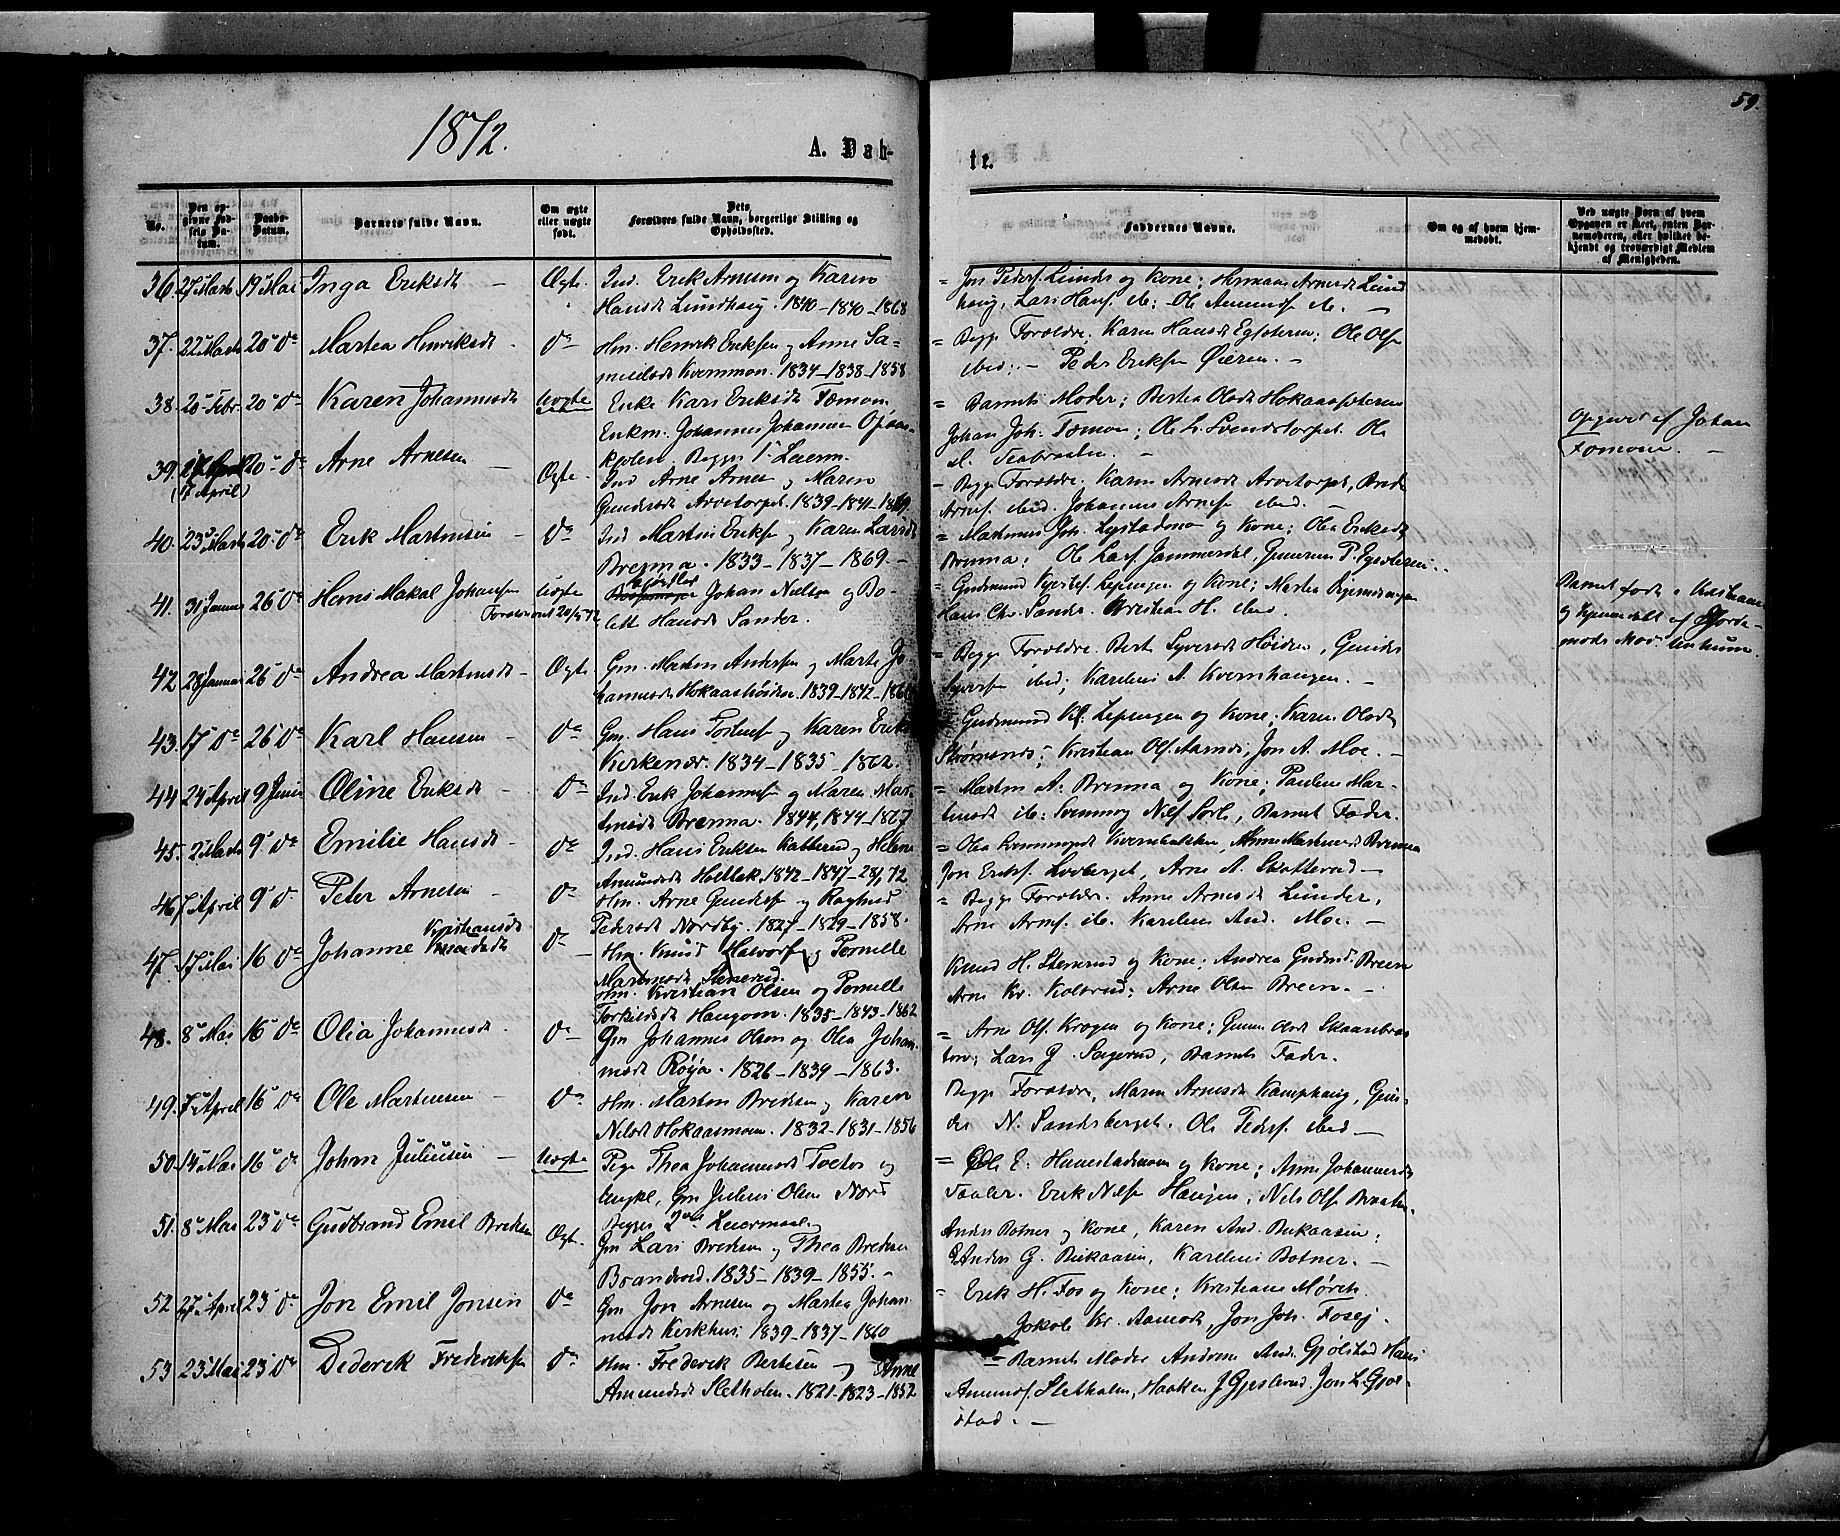 59.
1872.
A. Døb-
te.
No.
Den op-
givne Fød-
sels Da-
tum.
Daabs-
Datum.
Barnets fulde Navn.
Om ægte
eller uægte
født.
Dets
Forældres fulde Navn, borgerlige Stilling og
Opholdssted.
Faddernes Navne.
Om og af hvem hjem-
medøbt.
Ved uægte Børn af hvem
Opgaven er skeet, enten Bar-
nemoderen, eller hvilket be-
kjendt og troværdigt Medlem
af Menigheden.
36 27 Marts 19 Mai Inga Eriksdt – Ægte Ind. Erik Arnesen og Karen
Hansdt Lundhaug. 1840 – 1840 – 1868
= Jon Peders. Lunder og Kone; Arnesdt Lund
haug, Lars Hans. ib: Ole Amunds. ib. –
37. 22 Marts 20 Do Martea Henriksdt Do Hm. Henrik Eriksen og Anne Sa-
muelsdt Kvernmon. 1834 – 1838 – 1858
= Begge Forældre; Karen Hansdt; Ole Ols.
ibid; – Peder Eriksen Øieren. –
38. 20 Febr. 20 Do Karen Johannesdt Uægte Enke Kari Eriksdt Tømon
Enkm. Johannes Johannesen
Begges 1ste Leierm.
= Barnets Moder; Berthe Olsdt
Johan Joh. Tæmon; Ole L. Svendstorpet. Ole
Opgivet af Johan
Tomoen. –
39. 20 Do Arne Arnesen – Ægte.
(17 April)
Ind Arne Arnes. og Maren
Gundersdt Arvetorpet. 1839 – 1841 – 1869.
– Begge Forældre. Karen Arnesdt Arvetorpet,
Arnes. ibid. Johannes Arnes. ibid. –
40. 23 Marts 20 Do Erik Martinsen – Do Ind Martin Eriks. og Karen Larsdt
Brenna. 1833 – 1837 – 1869. –
= Mathias Joh. og Kone; Olea Eriksdt
Brenna; Ole Lars. Jammerdal,
41. 31 Januar 26 Do Hans Makal Johansen Uægte Johan Nielsen og Bo-
lette Hansdt Sander.
= Gudmund Lepengen og Kone; Marthe
Hans Chr. Sander. Kristian H. ibid.
Barnet født i Kristiania
42 28 Januar 26 Do Andrea Martinsdt – Ægte Gm. Martin Anders. og Marte Jo-
hannesdt Hokaashøiden. 1839 – 1842 –
= Begge Forældre. Berthe Syversdt Høiden, Gunder
Syvers. ibid; Karelius A. Kvernhaugen. –
43. 17 Do 26 Do Karl Hansen – Do Gm. Hans Tostens. og Karen Eriks
Kirkenær. 1834 – 1835 – 1862.
= Gudmund Kl. Lepengen og Kone; Karen Olsdt
Strømsnæs; Kristian Ols. Aamodt; Jon A. Moe. –
44 24 April 9 Juni Oline Eriksdt – Do Ind. Erik Johannes. og Maren Mar-
tinsdt Brenna. 1844, 1844 – 1867
= Martin A. Brenna og Kone; Pauline Mar-
tinsdt ib: Svennung Nils. Sorli, Barnets Fader.
45. 2 Marts 9 Do Emilie Hansdt – Do Ind. Hans Eriksen Kalterud og Helene
Amundsdt Holtbak. 1842 – 1847 – 28/, 72
= Olea Svenningsdt Kvernbakken, Anne Martinsdt Brenna
Jon Eriks. Lovberget, Arne A. Skotterud –
46 7 April 9 D Peter Arnesen – Do Hm. Arne Gunders. og Ragnild
Pedersdt Nordby. 1827 – 1829 – 1858.
= Begge Forældre. Anne Arnesdt Lunder,
Arne Arnes. ib. Karelius And. Moe. –
47. 17 Mai 16 Do Johanne Kristiansdt Knudsdt Do Hm. Knud Halvors. og Pernille
Martinsdt Stenerud.
Hm. Kristian Olsen og Pernille
Torkildsdt Haugom. 1835 – 1843 – 1862
Knud H. Stenerud og Kone; Andrea Gudmd. Breen
Arne Kr. Kolbrud; Arne Olsen Breen. –
48. 8 Mai 16 Do Olia Johannesdt Do Gm Johannes Olsen og Olea Johan-
nesdt Røija. 1826 – 1839 – 1863.
= Arne Ols. Krogen og Kone; Gunnor Olsdt
Lars G. Sagerud, Barnets Fader.
49. 7 April 16 Do Ole Martinsen – Do Hm. Martin Bredesen og Karen
Nilsdt Hokaasmoen. 1832 – 1831 – 1856
Begge Forældre, Maren Arnesdt Kamphaug, Gun-
der N. Sandsberget. Ole Peders. ibid –
50. 14 Mai 16 Do Johan Juliusen – Uægte Pige Thea Johannesdt og
Ungkl, Gm Julius Olsen Nord
Begges 2det Leiermaal.
= Ole E. Hunestadmoen og Kone; Anne Johannesdt
Taaler. Erik Nils. Haugen, Nils Ols. Braaten.
51. 8 Mai 23 Do Gudbrand Emil Bredesen Ægt. Gm Lars Bredesen og Thea Bredesen
Brandvold. 1835 – 1839 – 1855. –
Anders Botner og Kone, Karen And. Birkaasen;
Anders G. Birkaasen, Karelius Botner. –
52. 27 April 23 Do Jon Emil Jonsen Do Gm Jon Arnesen og Martea Johan-
nesdt Kirkhus. 1839 – 1837 – 1860
= Erik H. Fos og Kone; Kristiane Mørch.
Jakob Kr. Aamodt, Jon Joh. Fosej.
53 23 Mai 23 Do Dederik Frederiksen Do Hm. Frederik Bertesen og Anne
Amundsdt Sletholen. 1821 – 1823 – 1852
= Barnets Moder Andrine And. Gjølstad Hans
Amunds. Sletholen, Haaken J Gjeslerud. Jon L. Gjøl-
stad. –